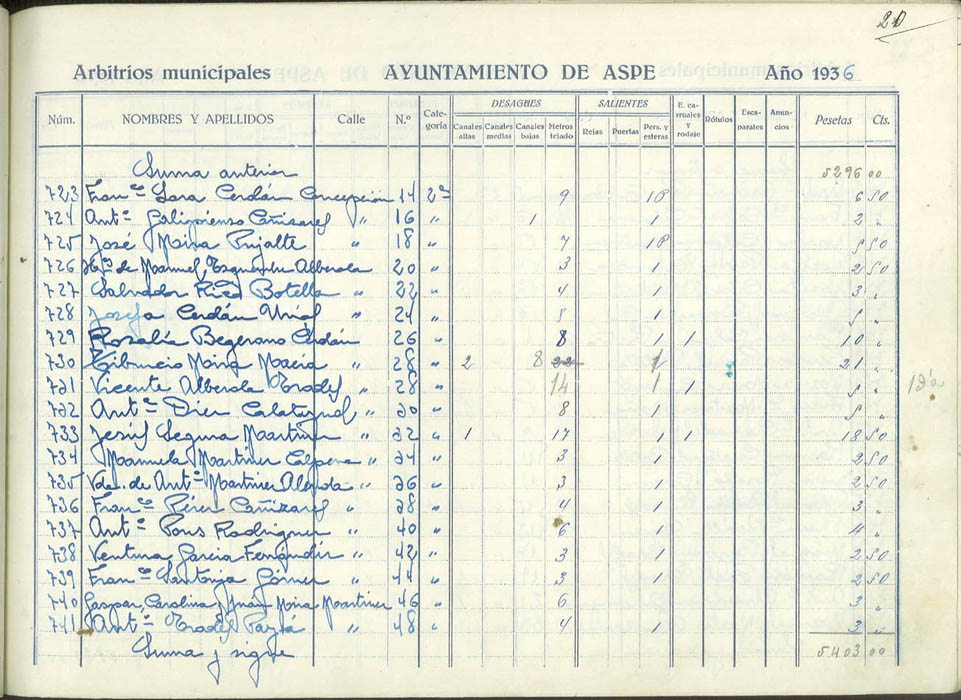 20
Arbitrios municipales AYUNTAMIENTO DE ASPE Año 1936
Núm. NOMBRES Y APELLIDOS Calle N.º Categoría DESAGUES Canales altas Canales medias Canales bajas Metros tejado SALIENTES Rejas Puertas Pers. y esteras E. carruajes y rodaje Rótulos Escaparates Anuncios Pesetas Cts.
Suma anterior 5296 00
723 Fran.co Lara Cerdán Concepción 14 2ª 9 1P 6 50
724 Ant.º Galipienso Cañizares " 16 " 1 1 2 "
725 José Mira Pujalte " 18 " 7 1P 5 50
726 de Manuel Alberola 20 " 3 1 2 50
727 Salvador Ricó Botella " 22 " 4 1 3 "
728 Josefa Cerdán " 24 " 8 1 5 "
729 Rosalía Begerano Cerdán 26 " 8 1 1 10 "
730 Tiburcio Mira Macia " 28 " 2 8 22 1 21 "
731 Vicente Alberola Pradel 28 " 14 1 1 "
732 Ant.º Diez Calatayud " 30 " 8 1 5 "
733 Jesús Segura Martinez " 32 " 1 17 1 1 18 50
734 Manuela Martinez Calpena " 34 " 3 1 2 50
735 Vda. de Ant.º Martinez " 36 " 3 1 2 50
736 Fran.co Pérez Cañizares " 38 " 4 1 3 "
737 Ant.º Pons Rodriguez " 40 " 6 1 4 "
738 Ventura Garcia Fernández " 42 " 3 1 2 50
739 Fran.co Santonja Gómez " 44 " 3 1 2 50
740 Gaspar, Carolina y Mira Martinez 46 " 6 3 "
741 Ant.º Pradel " 48 " 4 1 3 "
Suma y sigue 5403 00